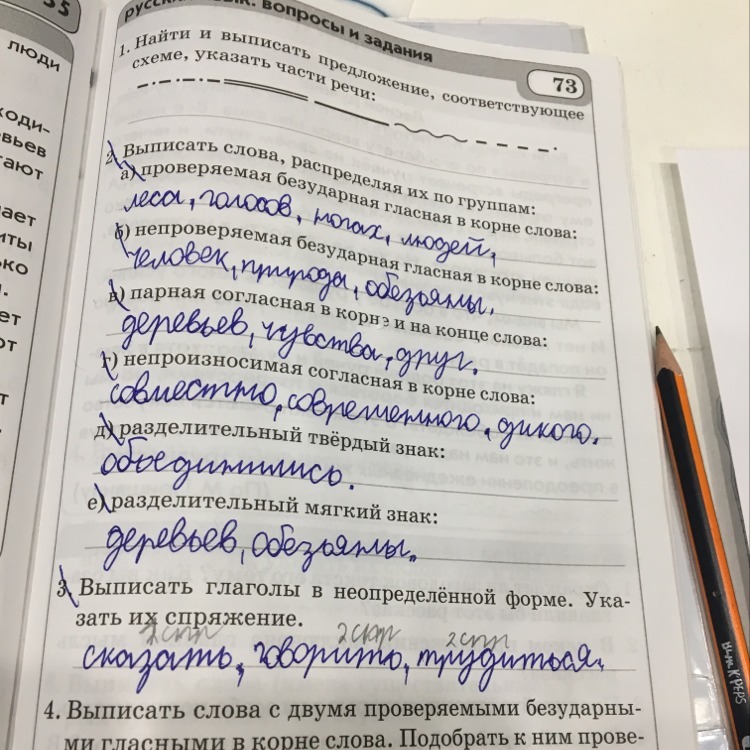 35
люди
ходи-
вьев
гают
РУССКИЙ ЯЗЫК. ВОПРОСЫ И ЗАДАНИЯ
73
1. Найти и выписать предложение, соответствующее
схеме, указать части речи:
2. Выписать слова, распределяя их по группам:
а) проверяемая безударная гласная в корне слова:
леса, голосов, ногах, людей,
б) непроверяемая безударная гласная в корне слова:
человек, природа, обезьяны.
в) парная согласная в корне и на конце слова:
деревьев, чувства, друг.
г) непроизносимая согласная в корне слова:
совместно, современного, дикого.
д) разделительный твёрдый знак:
объединились.
е) разделительный мягкий знак:
деревьев, обезьяны.
3. Выписать глаголы в неопределённой форме. Ука-
зать их спряжение.
2 спр 2 спр 2 спр
сказать, говорить, трудиться.
4. Выписать слова с двумя проверяемыми безударны-
ми гласными в корне слова. Подобрать к ним прове-